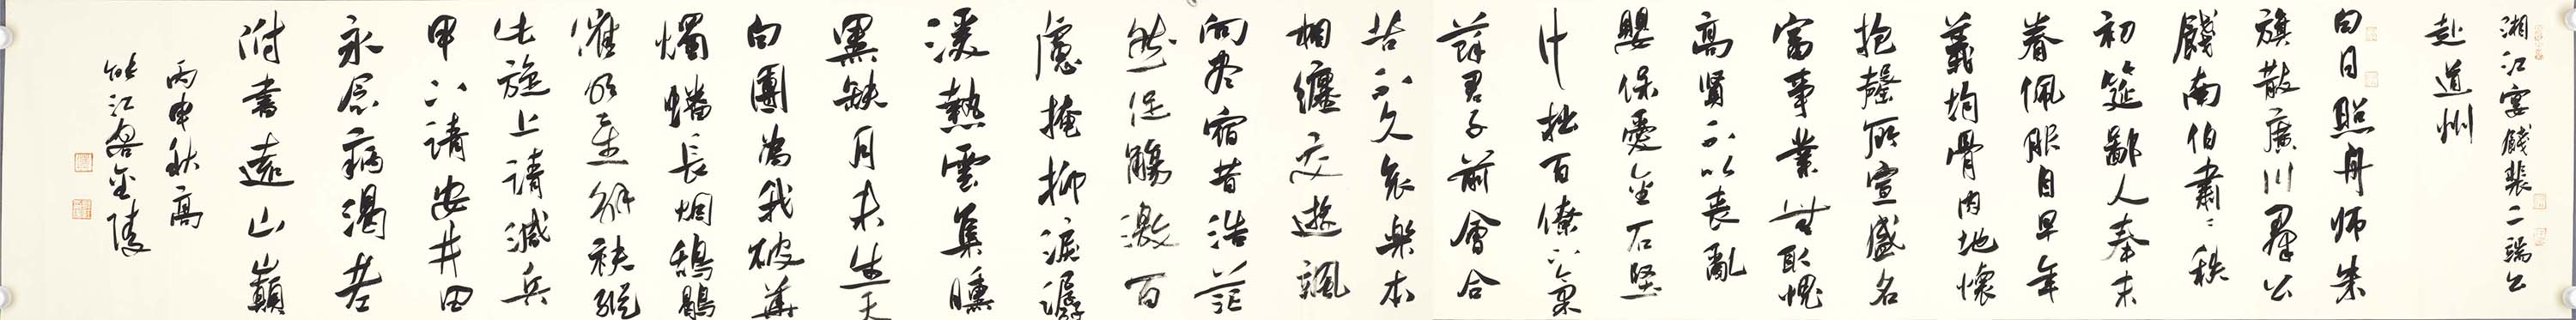 湘江宴餞裴二端公
赴道州
白日照舟師朱
旗散廣川羣公
餞南伯肅々秩
初筵鄙人奉末
眷佩服自早年
義均骨肉地懷
抱罄所宣盛名
富事業無取愧
高賢不以喪亂
嬰保愛金石堅
計拙百僚下氣
蘇君子前會合
苦不久哀樂本
相纏交遊颯
向盡宿昔浩茫
然促觴激百
慮掩抑淚潺
湲熱雲集曛
黑缺月未生天
白團為我破華
燭蟠長烟鴰鶡
催明星解袂從
此旋上請減兵
甲下請安井田
永念病渴老
附書遠山巔
丙申秋高
江金陵